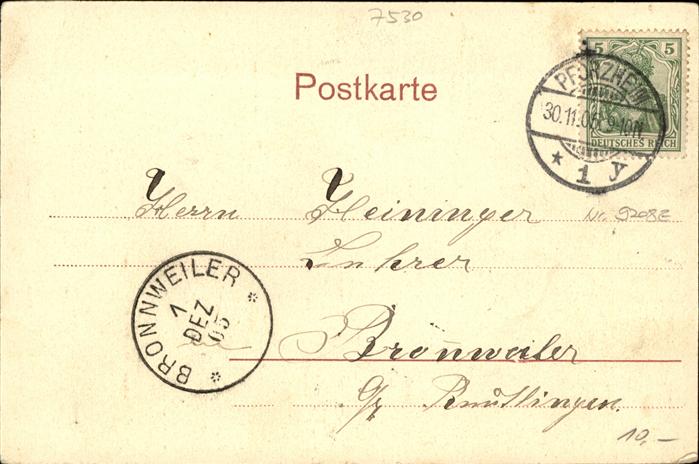 7530
5 5
DEUTSCHES REICH
PFORZHEIM
30.11.05. 6-10N.
* 1 y
Postkarte
Herrn Heininger
Nr. 9208E
Lehrer
BRONNWEILER
1
DEZ
05
Bronnweiler
Reutlingen.
10,-